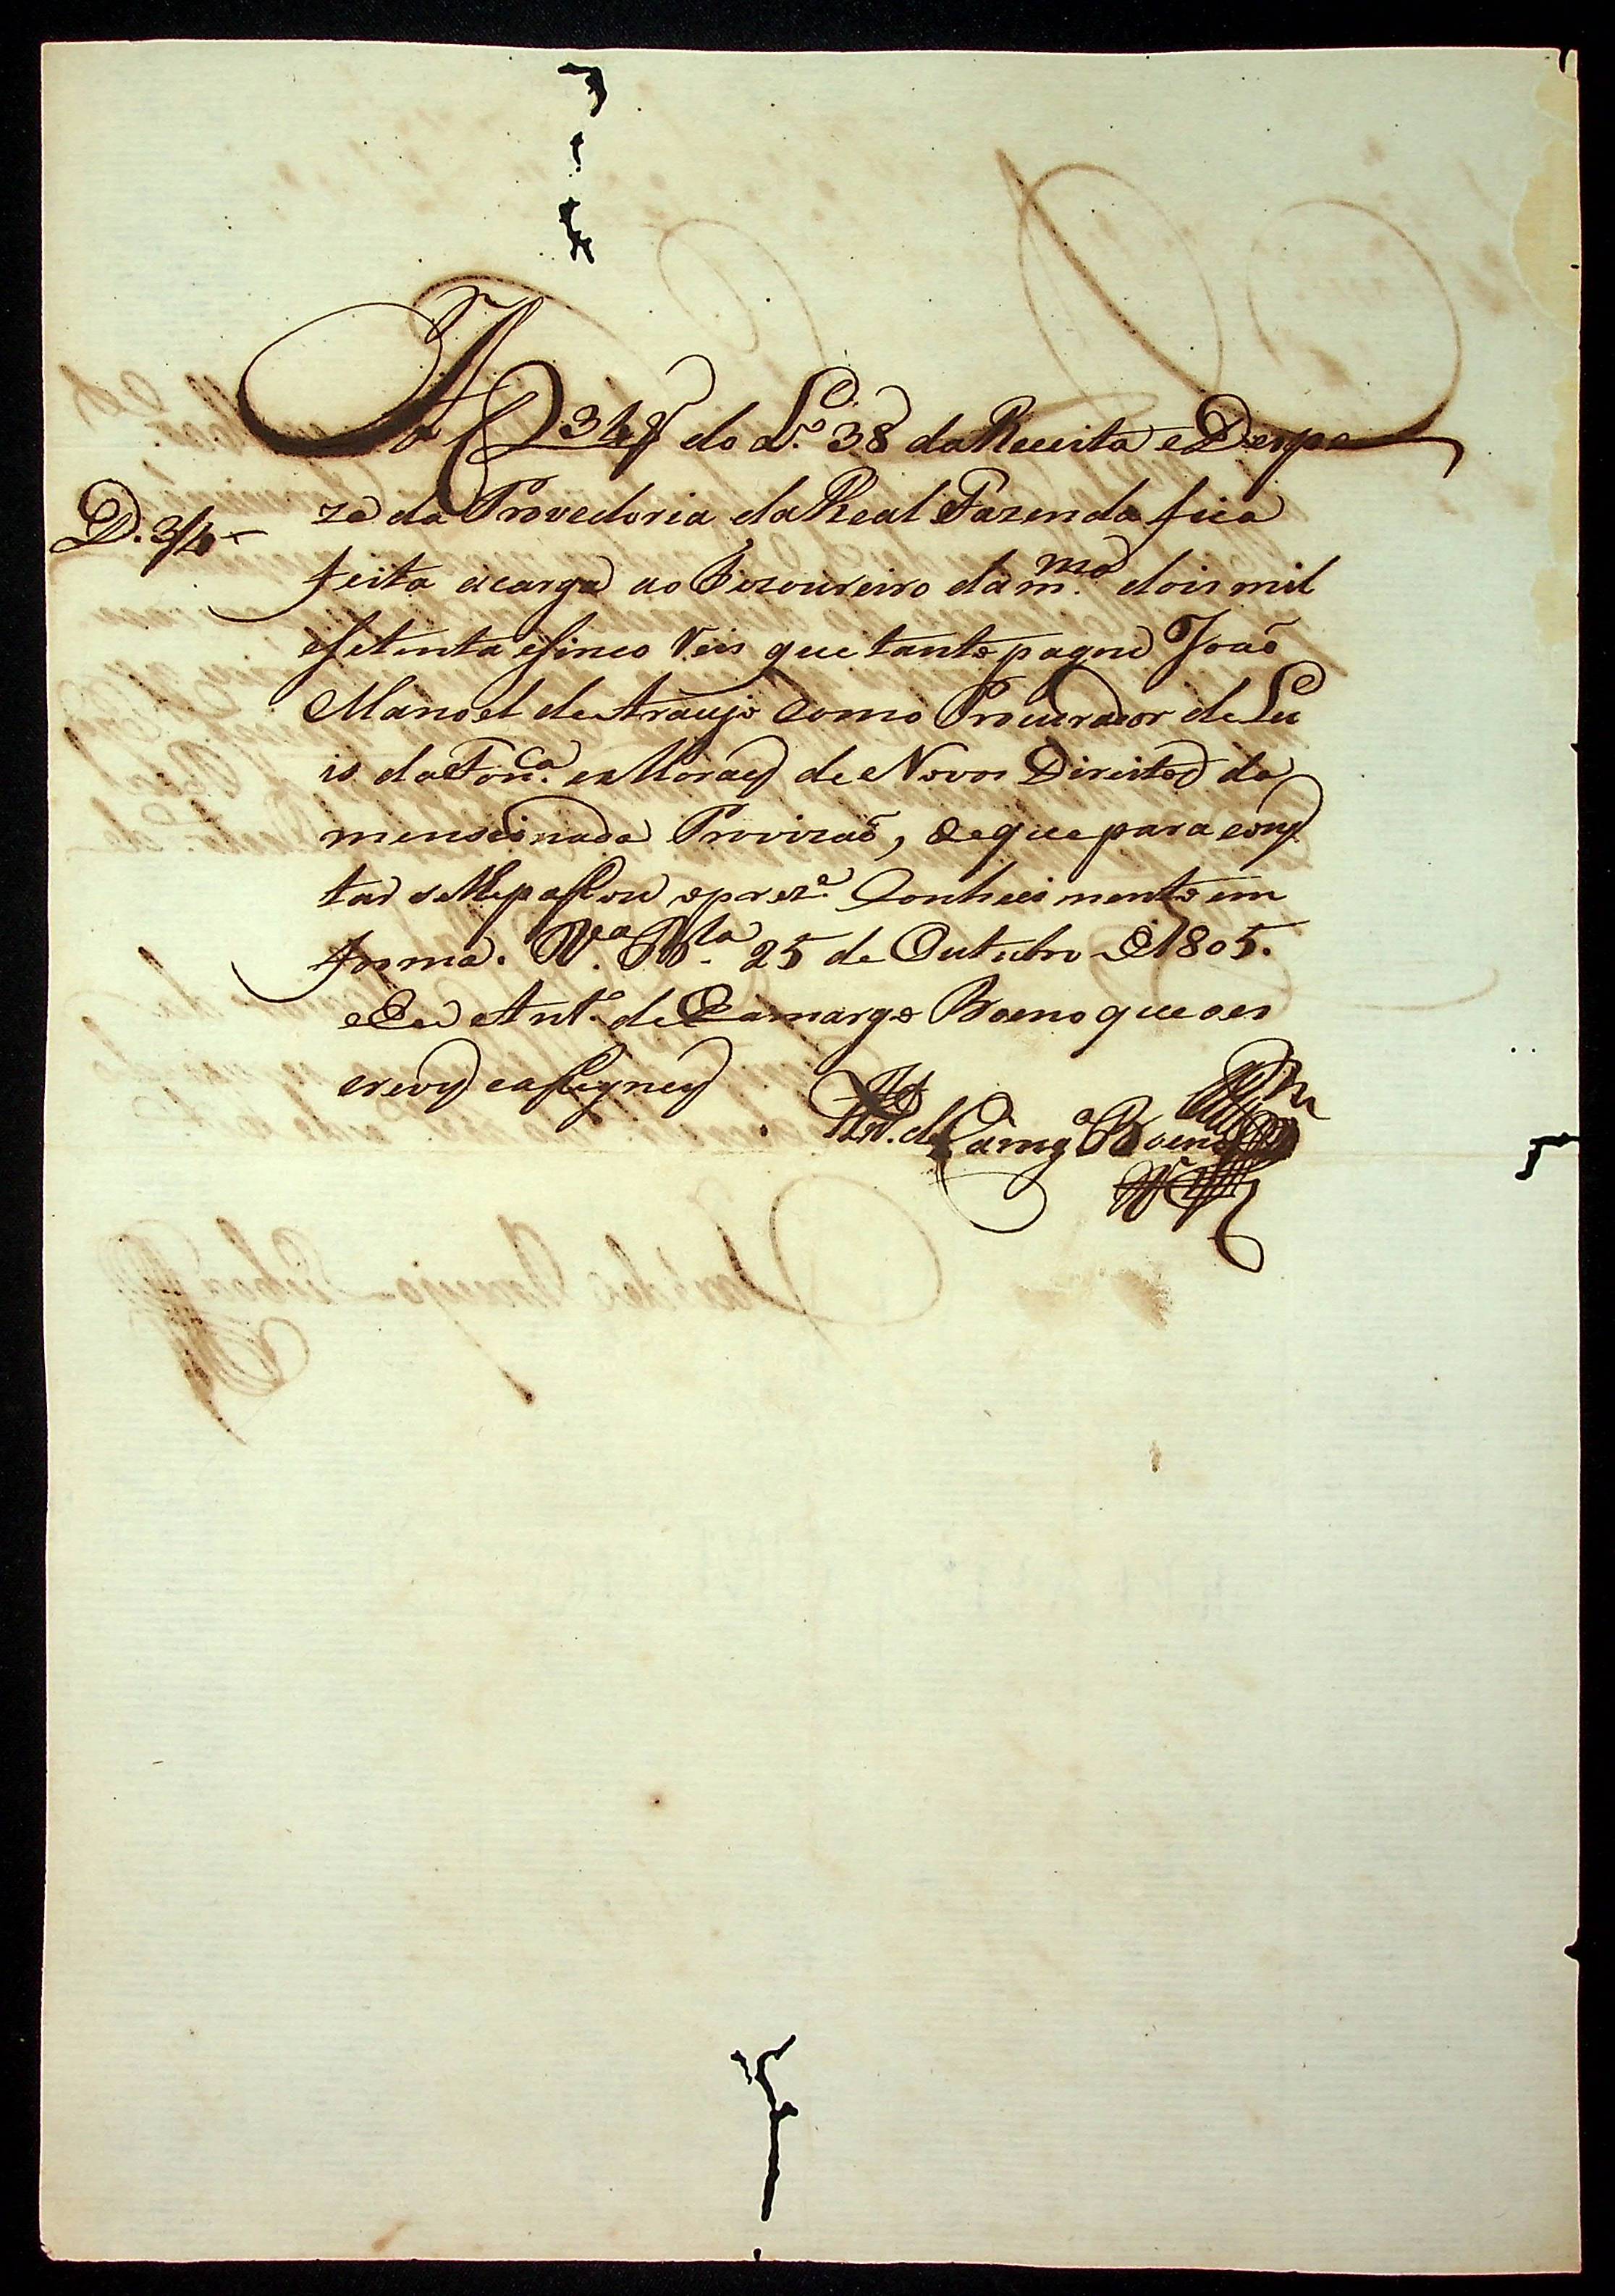 A f 348 do L.º 38 da Receita e Despe
D. 3/4
za da Provedoria da Real Fazenda fica
feita acarga ao Tezoureiro da m.ma dois mil
e Setenta e Sinco reis que tanto pagou Joaõ
Manoel de Araujo Como Procurador de Lu
is da Fon.ca e Moraes de Novos Direitos da
mensionada Provizaõ, de que para cons
tar selhe passou o prez.e Conhecimento em
forma. V.a R.ca 25 de Outubro de 1805.
e Eu Ant.º de Camargo Boeno que o es
crevy e assigney
Ant.º de Camg.º Boeno